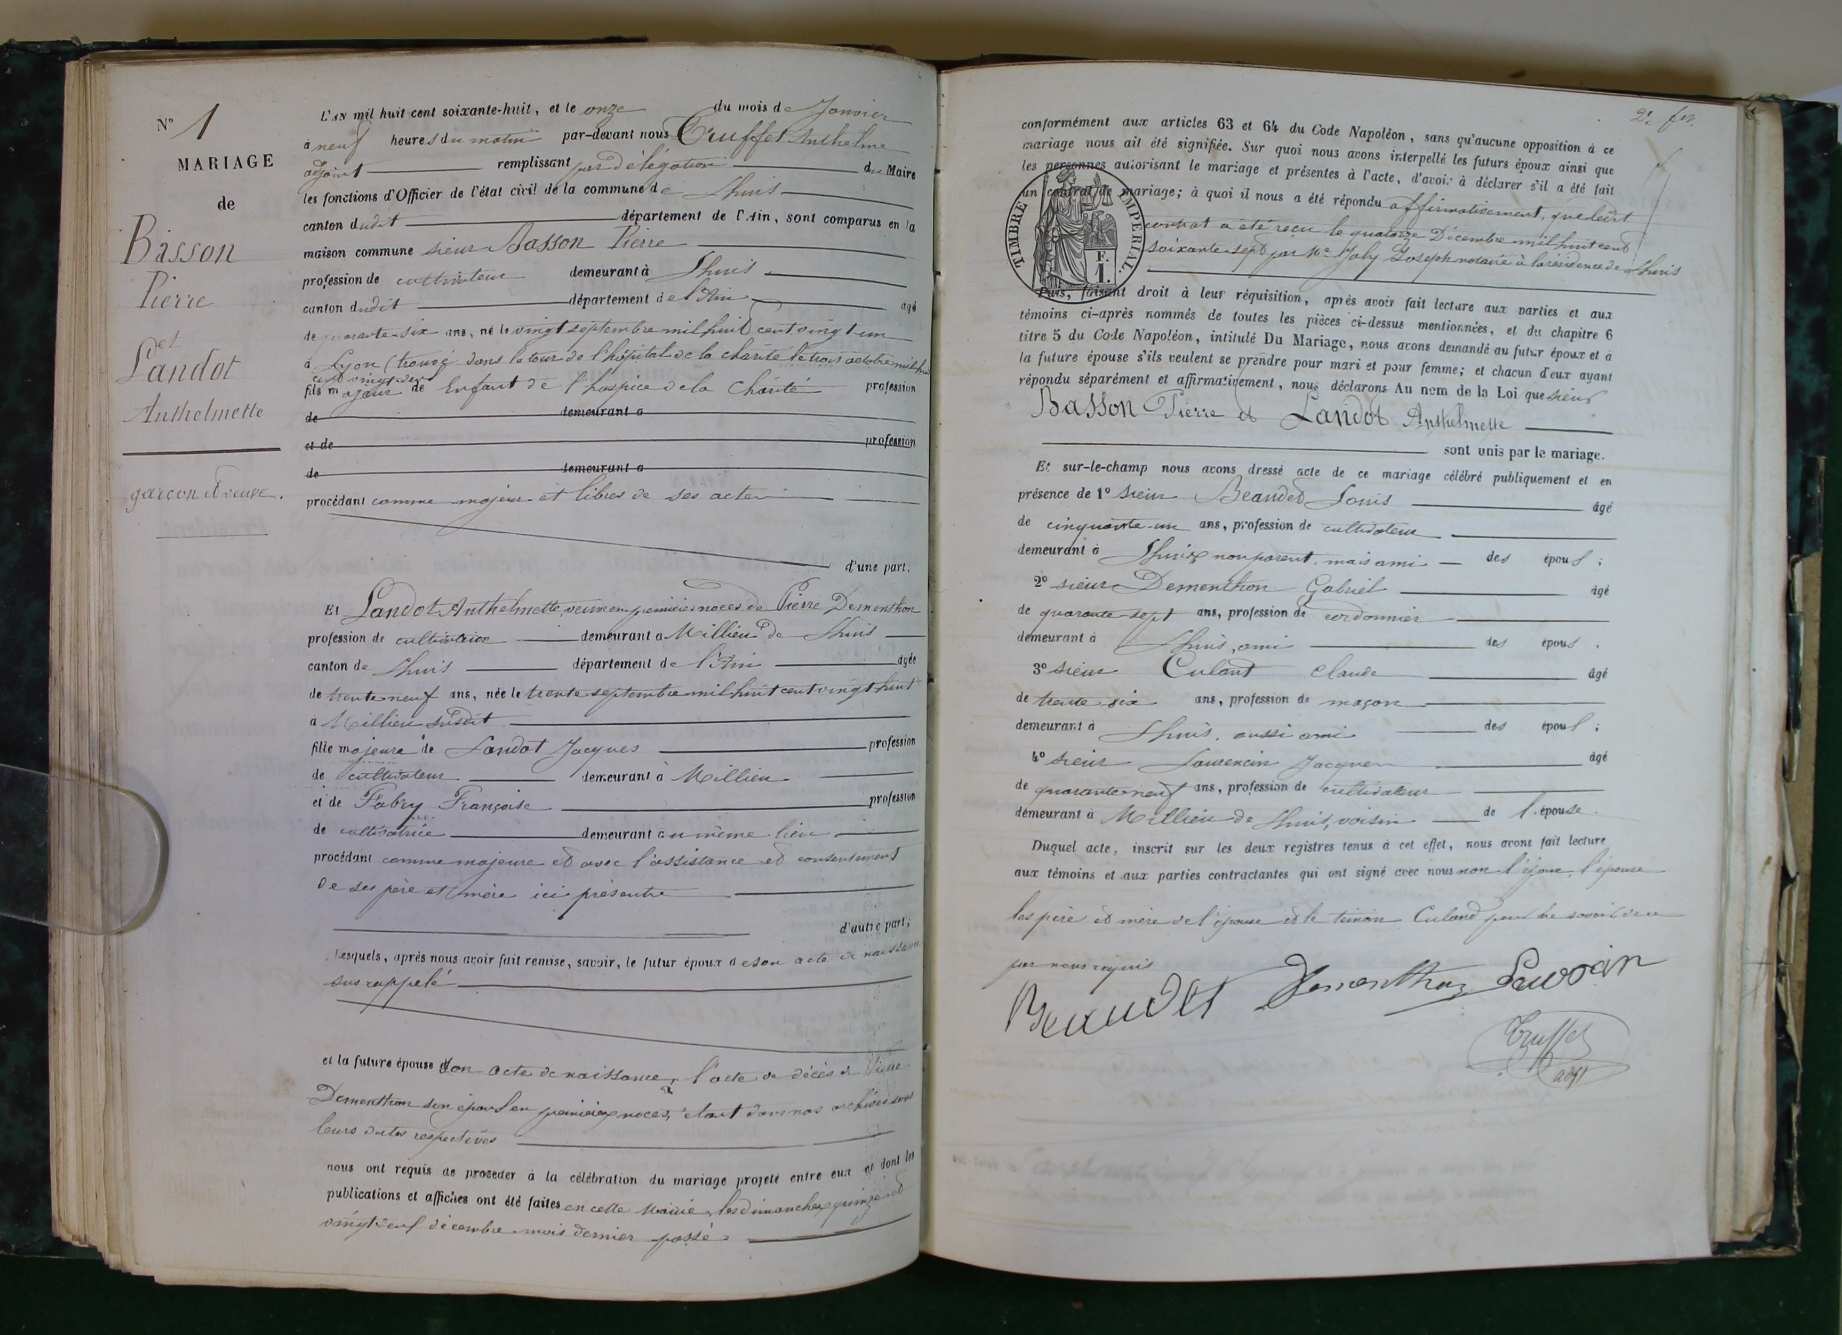 N° 1
MARIAGE
de
Basson
Pierre
et
Landot
Anthelmette
garçon et veuve.
L'AN mil huit cent soixante-huit, et le onze du mois de Janvier
à neuf heures du matin par-devant nous Truffet Anthelme
adjoint remplissant par délégation du Maire
les fonctions d'Officier de l'état civil de la commune de Lhuis
canton dudit département de l'Ain, sont comparus en la
maison commune sieur Basson Pierre
profession de cultivateur demeurant à Lhuis
canton dudit département de l'Ain âgé
de quarante-six ans, né le vingt septembre mil huit cent vingt un
à Lyon (trouvé dans le tour de l'hôpital de la charité le trois octobre mil huit
cent vingt un)
fils majeur de Enfant de l'hospice de la Charité profession
de demeurant à
et de profession
de demeurant à
procédant comme majeur et libres de ses actes
d'une part.
Et Landot Anthelmette, veuve en premières noces de Pierre Dementhon
profession de cultivatrice demeurant à Millieu de Lhuis
canton de Lhuis département de l'Ain âgée
de trente neuf ans, née le trente septembre mil huit cent vingt huit
à Millieu susdit
fille majeure de Landot Jacques profession
de cultivateur demeurant à Millieu
et de Fabry Françoise profession
de cultivatrice demeurant au même lieu
procédant comme majeure et avec l'assistance et consentement
de ses père et mère ici présents
d'autre part;
Lesquels, après nous avoir fait remise, savoir, le futur époux de son acte de naissance
sus rappelé
et la future épouse son acte de naissance, l'acte de décès de Pierre
Dementhon son époux en premières noces, étant dans nos archives sous
leurs dates respectives
nous ont requis de procéder à la célébration du mariage projeté entre eux et dont les
publications et affiches ont été faites en cette Mairie, les dimanches quinze et
vingt neuf décembre mois dernier passé.
conformément aux articles 63 et 64 du Code Napoléon, sans qu'aucune opposition à ce
mariage nous ait été signifiée. Sur quoi nous avons interpellé les futurs époux ainsi que
les personnes autorisant le mariage et présentes à l'acte, d'avoir à déclarer s'il a été fait
un contrat de mariage; à quoi il nous a été répondu affirmativement, que ledit
contrat a été reçu le quatorze Décembre mil huit cent
soixante-sept par Me Joly Joseph notaire à la résidence de Lhuis
TIMBRE IMPERIAL.
F.
1.
Puis, faisant droit à leur réquisition, après avoir fait lecture aux parties et aux
témoins ci-après nommés de toutes les pièces ci-dessus mentionnées, et du chapitre 6
titre 5 du Code Napoléon, intitulé Du Mariage, nous avons demandé au futur époux et à
la future épouse s'ils veulent se prendre pour mari et pour femme; et chacun d'eux ayant
répondu séparément et affirmativement, nous déclarons Au nom de la Loi que sieur
Basson Pierre et Landot Anthelmette
sont unis par le mariage.
Et sur-le-champ nous avons dressé acte de ce mariage célébré publiquement et en
présence de 1° sieur Beaudet Louis âgé
de cinquante-un ans, profession de cultivateur
demeurant à Lhuis, non parent, mais ami des époux;
2° sieur Dementhon Gabriel âgé
de quarante sept ans, profession de cordonnier
demeurant à Lhuis, ami des époux.
3° sieur Culand Claude âgé
de trente six ans, profession de maçon
demeurant à Lhuis, aussi ami des époux;
4° sieur Laurencin Jacques âgé
de quarante neuf ans, profession de cultivateur
demeurant à Millieu de Lhuis, voisin de l'épouse.
Duquel acte, inscrit sur les deux registres tenus à cet effet, nous avons fait lecture
aux témoins et aux parties contractantes qui ont signé avec nous non l'époux, l'épouse
les père et mère de l'épouse et le témoin Culand pour ne savoir de ce
par nous requis
Beaudet Dementhon
Truffet
adjt